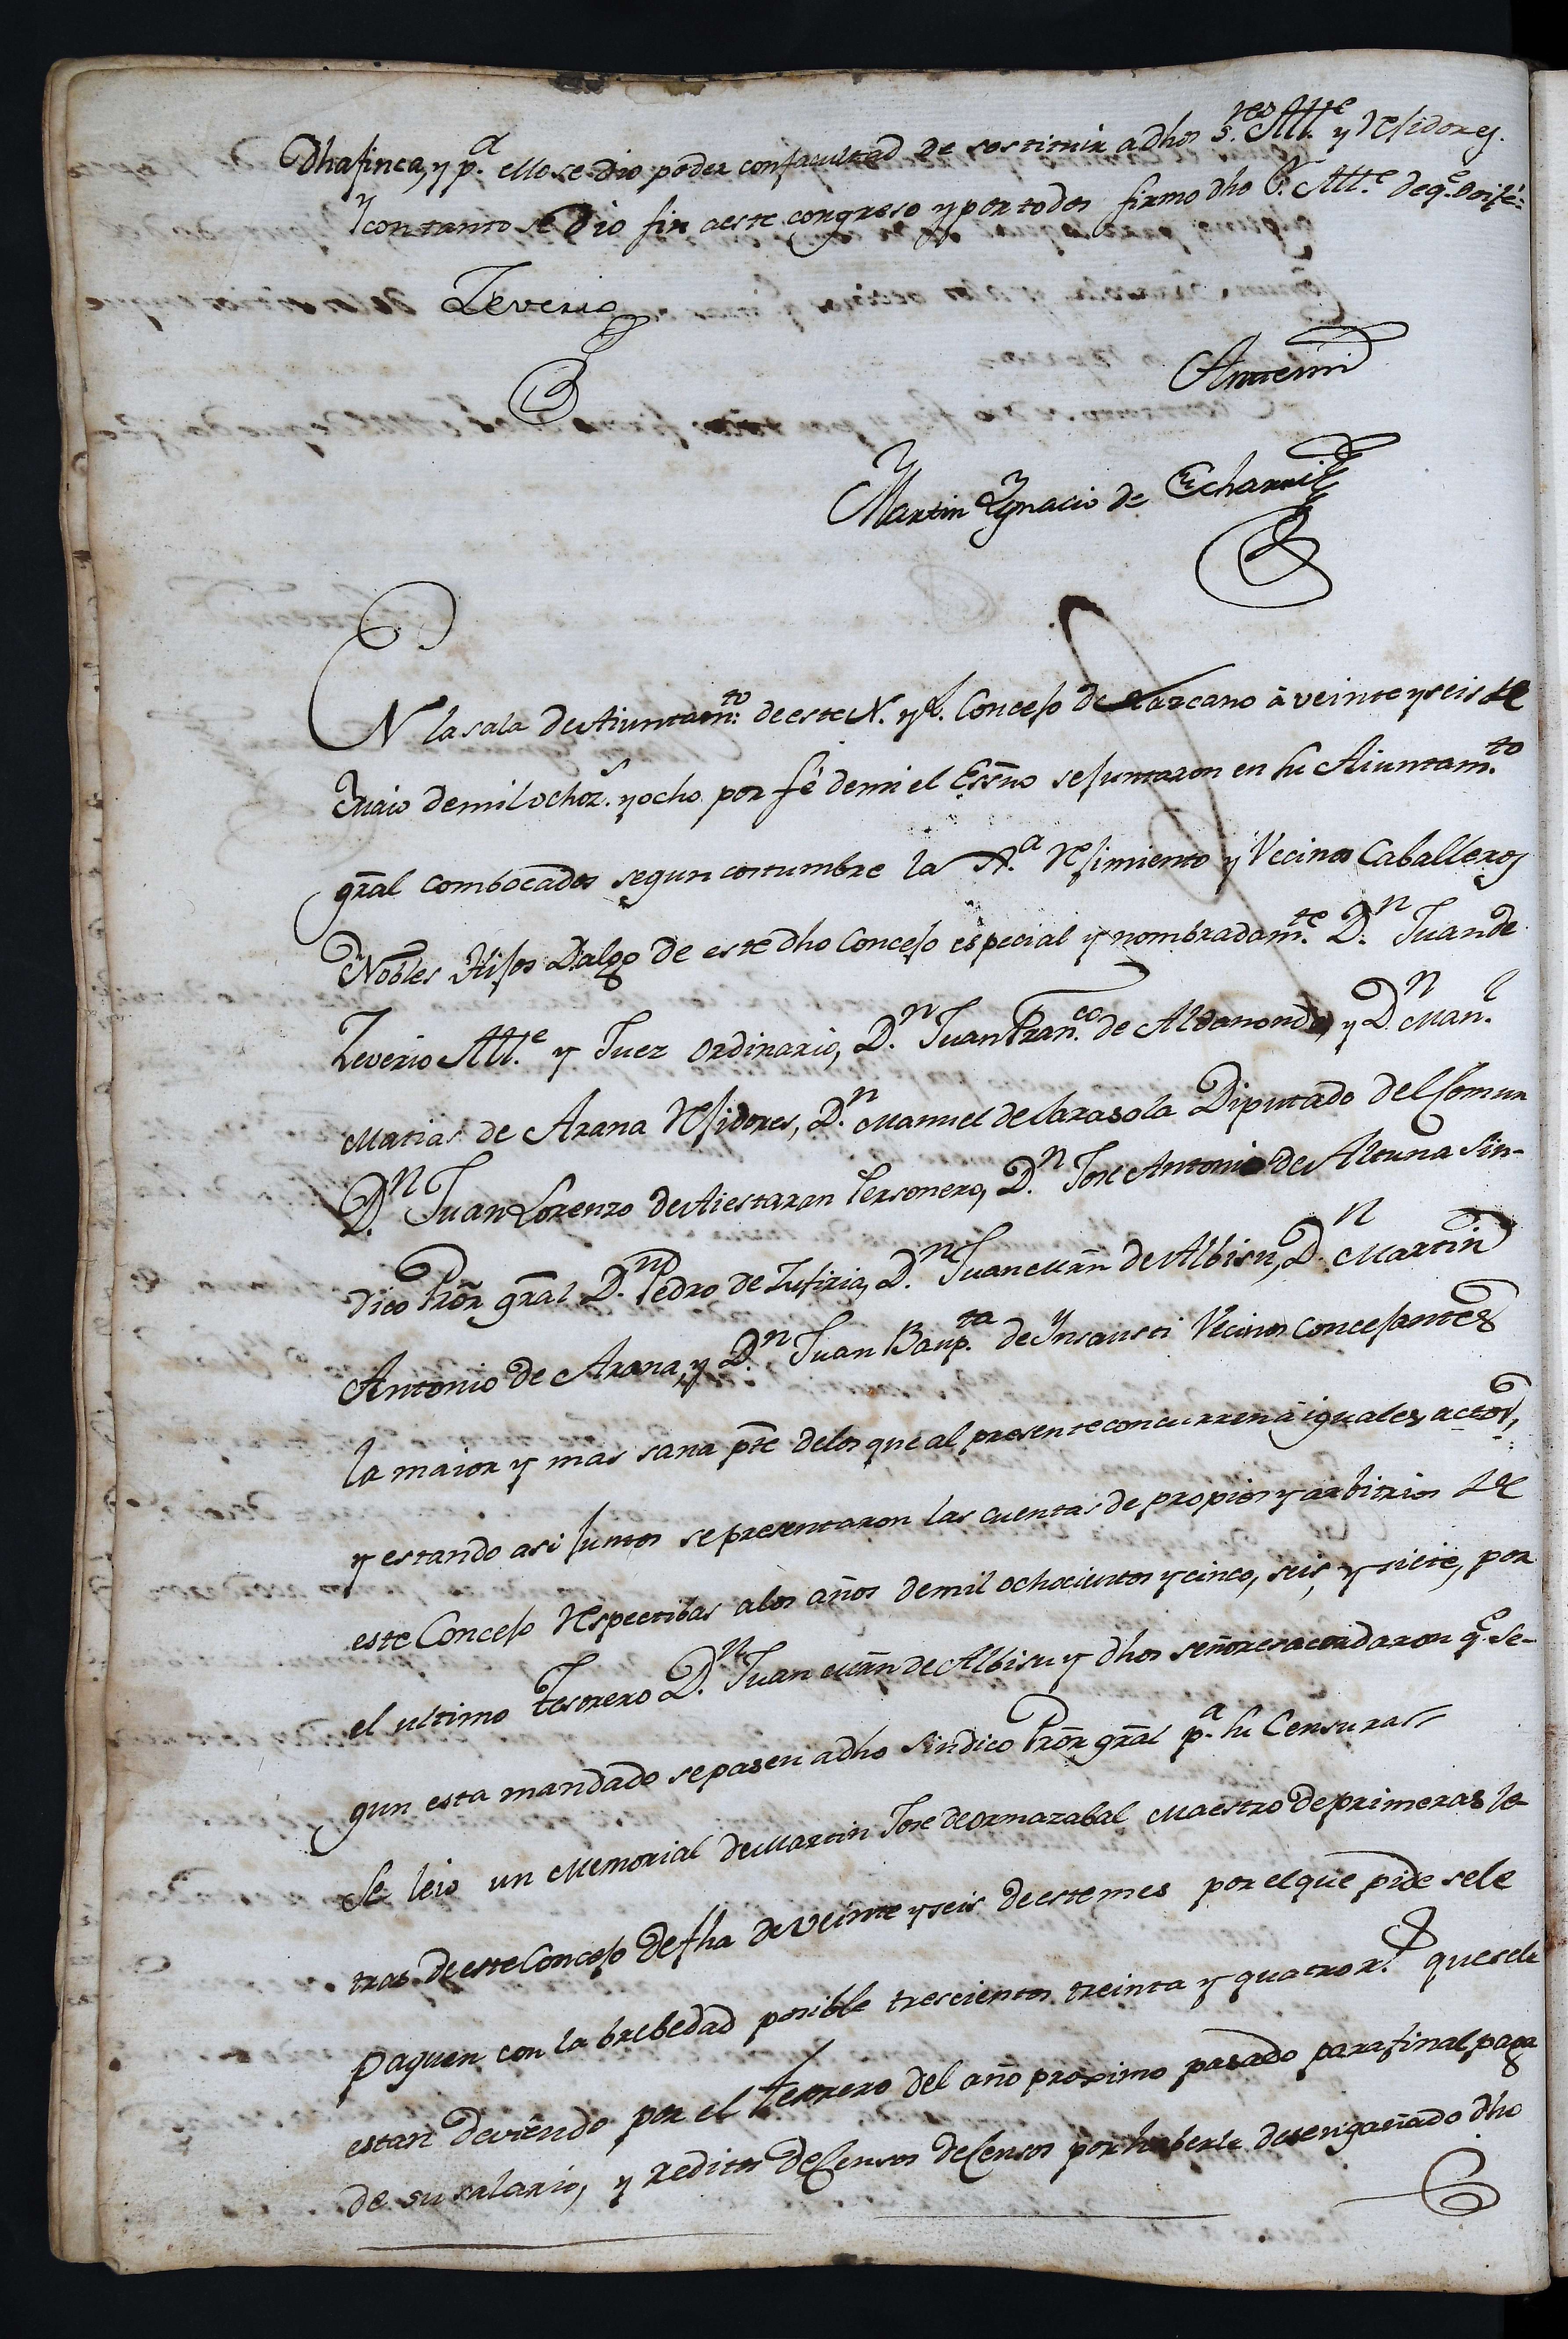 Dha finca, y p.ª ello se dio poder con facultad de sostituir a dhos S.res Allᵉ y Rejidores.
Y con tanto se dio fin a este congreso y por todos firmo dho S. Allᵉ de q.ᵉ doi fé:
Zeverio
Antemi
Martin Ygnacio de Echarri
EN la sala de Aiuntam.to de este N. y L. Concejo de Lazcano à veinte y seis de
Maio de mil ochoz.s y ocho por fé de mi el Essno se juntaron en su Aiuntam.to
gral combocados segun costumbre la N.ª Rejimiento y Vecinos Caballeros
Nobles Hijos Dalgo de este dho Concejo especial y nombradam.te D.n Juan de
Zeverio Allᵉ y Juez ordinario, D.n Juan Fran.co de Aldanondo, y D.n Man.l
Matias de Arana Rejidores, D.n Manuel de Larasola Diputado del Comun
D.n Juan Lorenzo de Aiestaran Personero, D.n Jose Antonio de Altuna Sin-
dico Prõr grãl D.n Pedro de Zufiria, D.n Juan Mãn de Albisu, D.n Martin
Antonio de Arana, y D.n Juan Baup.ta de Ynsausti Vecinos Concejantes
la maior y mas sana pte delos que al presente concurren à iguales actos,
y estando asi juntos se presentaron las cuentas de propios y arbitrios de
este Concejo Respectibas alos años de mil ochocientos y cinco, seis, y siete, por
el ultimo Tesorero D.n Juan Mãn de Albisu y dhos señores acordaron q.ᵉ se-
gun esta mandado se pasen a dho Sindico Prõr grãl p.ª su Censura
Se leio un Memorial de Martin Jose de Ormazabal Maestro de primeras le
tras de este Concejo de fha de veinte y seis de este mes por el que pide se le
paguen con la brebedad posible trescientos treinta y quatro r.s que se le
estan deviendo por el Tesorero del año proximo pasado para final paga
de su salario, y reditos de Censos de Censos por haberle desengañado dho